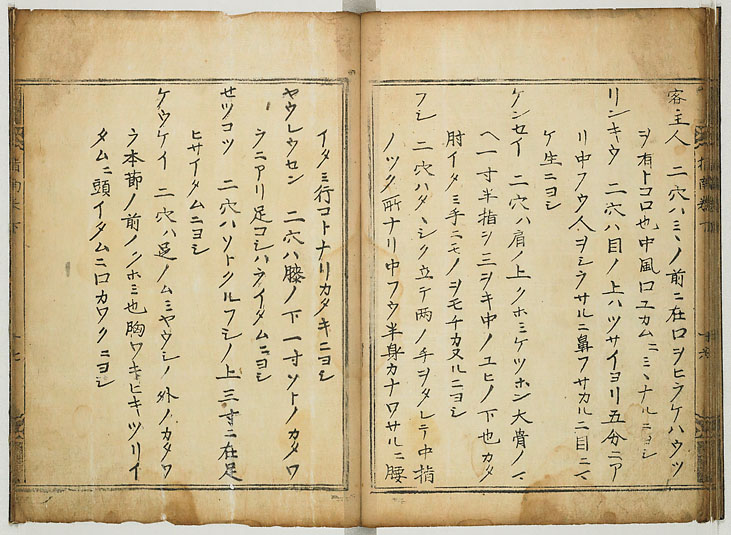 客主人 二穴ハミヽノ前ニ在口ヲヒラケハウツ
ヲ有トコロ也中風口ユカムニミヽナルニヨシ
リンキウ 二穴ハ目ノ上ハツサイヨリ五分ニア
リ中フウ人ヲシラサルニ鼻フサカルニ目ニマ
ケ生ニヨシ
ケンセイ 二穴ハ肩ノ上クホミケツホン大骨ノマ
ヘ一寸半指ヲ三ヲキ中ノユヒノ下也カタ
肘イタミ手ニモノヲモチカヌルニヨシ
フシ 二穴ハタヽシク立テ両ノ手ヲタレテ中指
ノツク所ナリ中フウ半身カナワサルニ腰
イタミ行コトナリカタキニヨシ
ヤウレウセン 二穴ハ膝ノ下一寸ソトノカタワ
ラニアリ足コシハライタムニヨシ
セツコツ 二穴ハソトクルフシノ上三寸ニ在足
ヒサイタムニヨシ
ケウケイ 二穴ハ足ノムミヤウシノ外ノカタワ
ラ本節ノ前ノクホミ也胸ワキヒキツリイ
タムニ頭イタムニ口カワクニヨシ
指南巻下